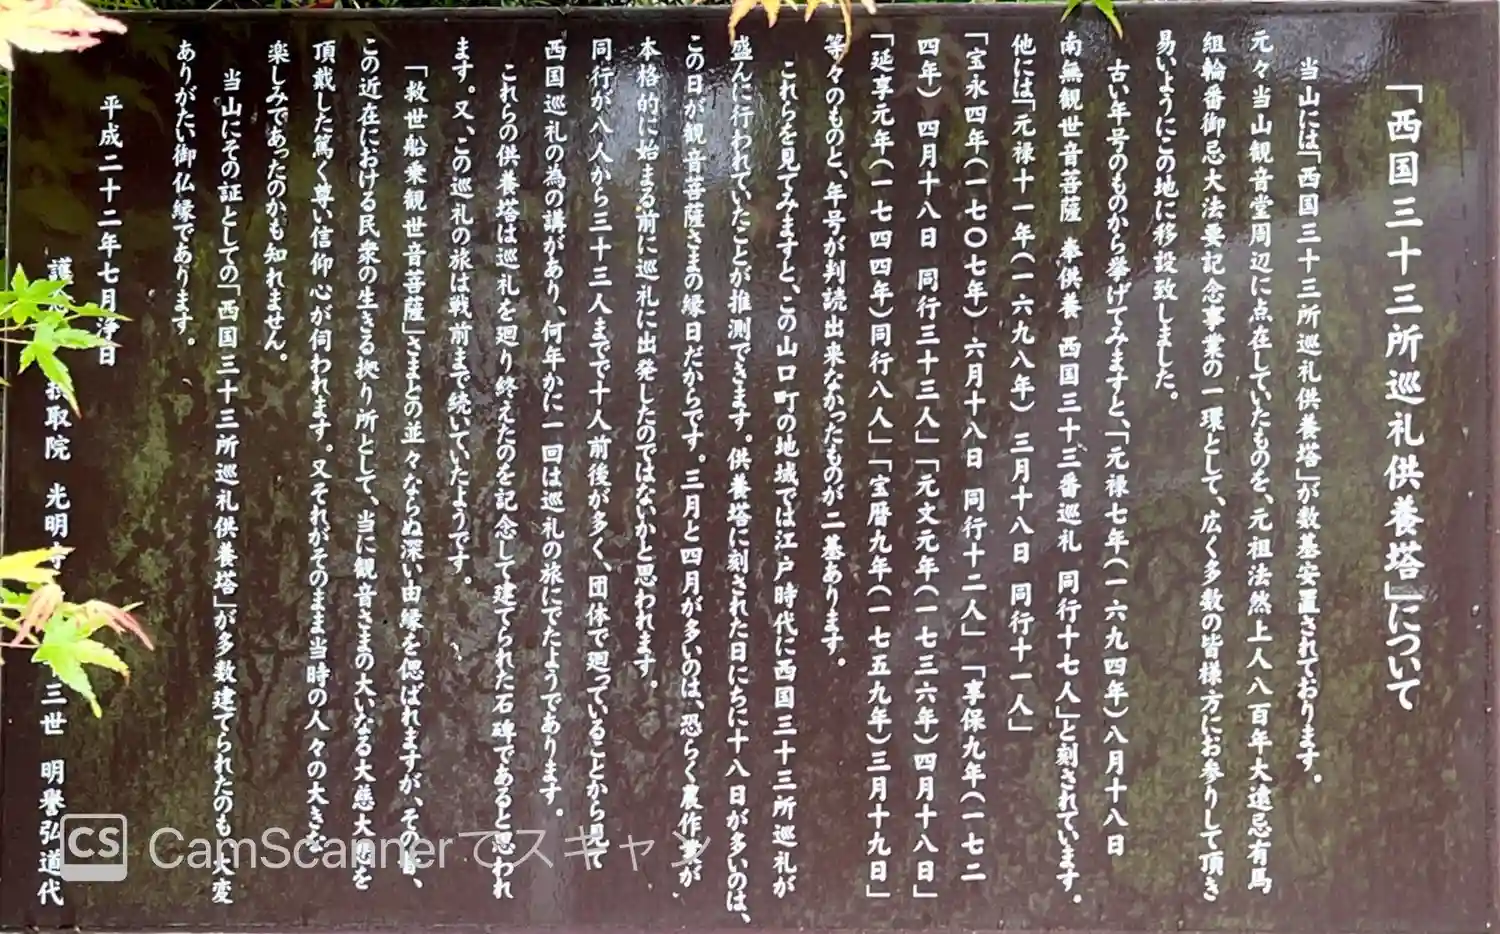 「西国三十三所巡礼供養塔」について
当山には「西国三十三所巡礼供養塔」が数基安置されております。
元々当山観音堂周辺に点在していたものを、元祖法然上人八百年大遠忌有馬
組輪番御忌大法要記念事業の一環として、広く多数の皆様方にお参りして頂き
易いようにこの地に移設致しました。
古い年号のものから挙げてみますと、「元禄七年(一六九四年)八月十八日
南無観世音菩薩 奉供養 西国三十三番巡礼 同行十七人」と刻されています。
他には「元禄十一年(一六九八年) 三月十八日 同行十一人」
「宝永四年(一七〇七年) 六月十八日 同行十二人」 「享保九年(一七二
四年) 四月十八日 同行三十三人」「元文元年(一七三六年)四月十八日」
「延享元年(一七四四年)同行八人」「宝暦九年(一七五九年)三月十九日」
等々のものと、年号が判読出来なかったものが二基あります。
これらを見てみますと、この山口町の地域では江戸時代に西国三十三所巡礼が
盛んに行われていたことが推測できます。供養塔に刻された日にちに十八日が多いのは、
この日が観音菩薩さまの縁日だからです。三月と四月が多いのは、恐らく農作業が
本格的に始まる前に巡礼に出発したのではないかと思われます。
同行が八人から三十三人までで十人前後が多く、団体で廻っていることから見て
西国巡礼の為の講があり、何年かに一回は巡礼の旅にでたようであります。
これらの供養塔は巡礼を廻り終えたのを記念して建てられた石碑であると思われ
ます。又、この巡礼の旅は戦前まで続いていたようです。
「救世船乗観世音菩薩」さまとの並々ならぬ深い由縁を偲ばれますが、その昔、
この近在における民衆の生きる拠り所として、当に観音さまの大いなる大慈大悲を
頂戴した篤く尊い信仰心が伺われます。又それがそのまま当時の人々の大きな
楽しみであったのかも知れません。
当山にその証としての「西国三十三所巡礼供養塔」が多数建てられたのも、大変
ありがたい御仏縁であります。
平成二十二年七月浄日
護 摂取院 光明寺 三世 明誉弘道代
CS CamScannerでスキャン